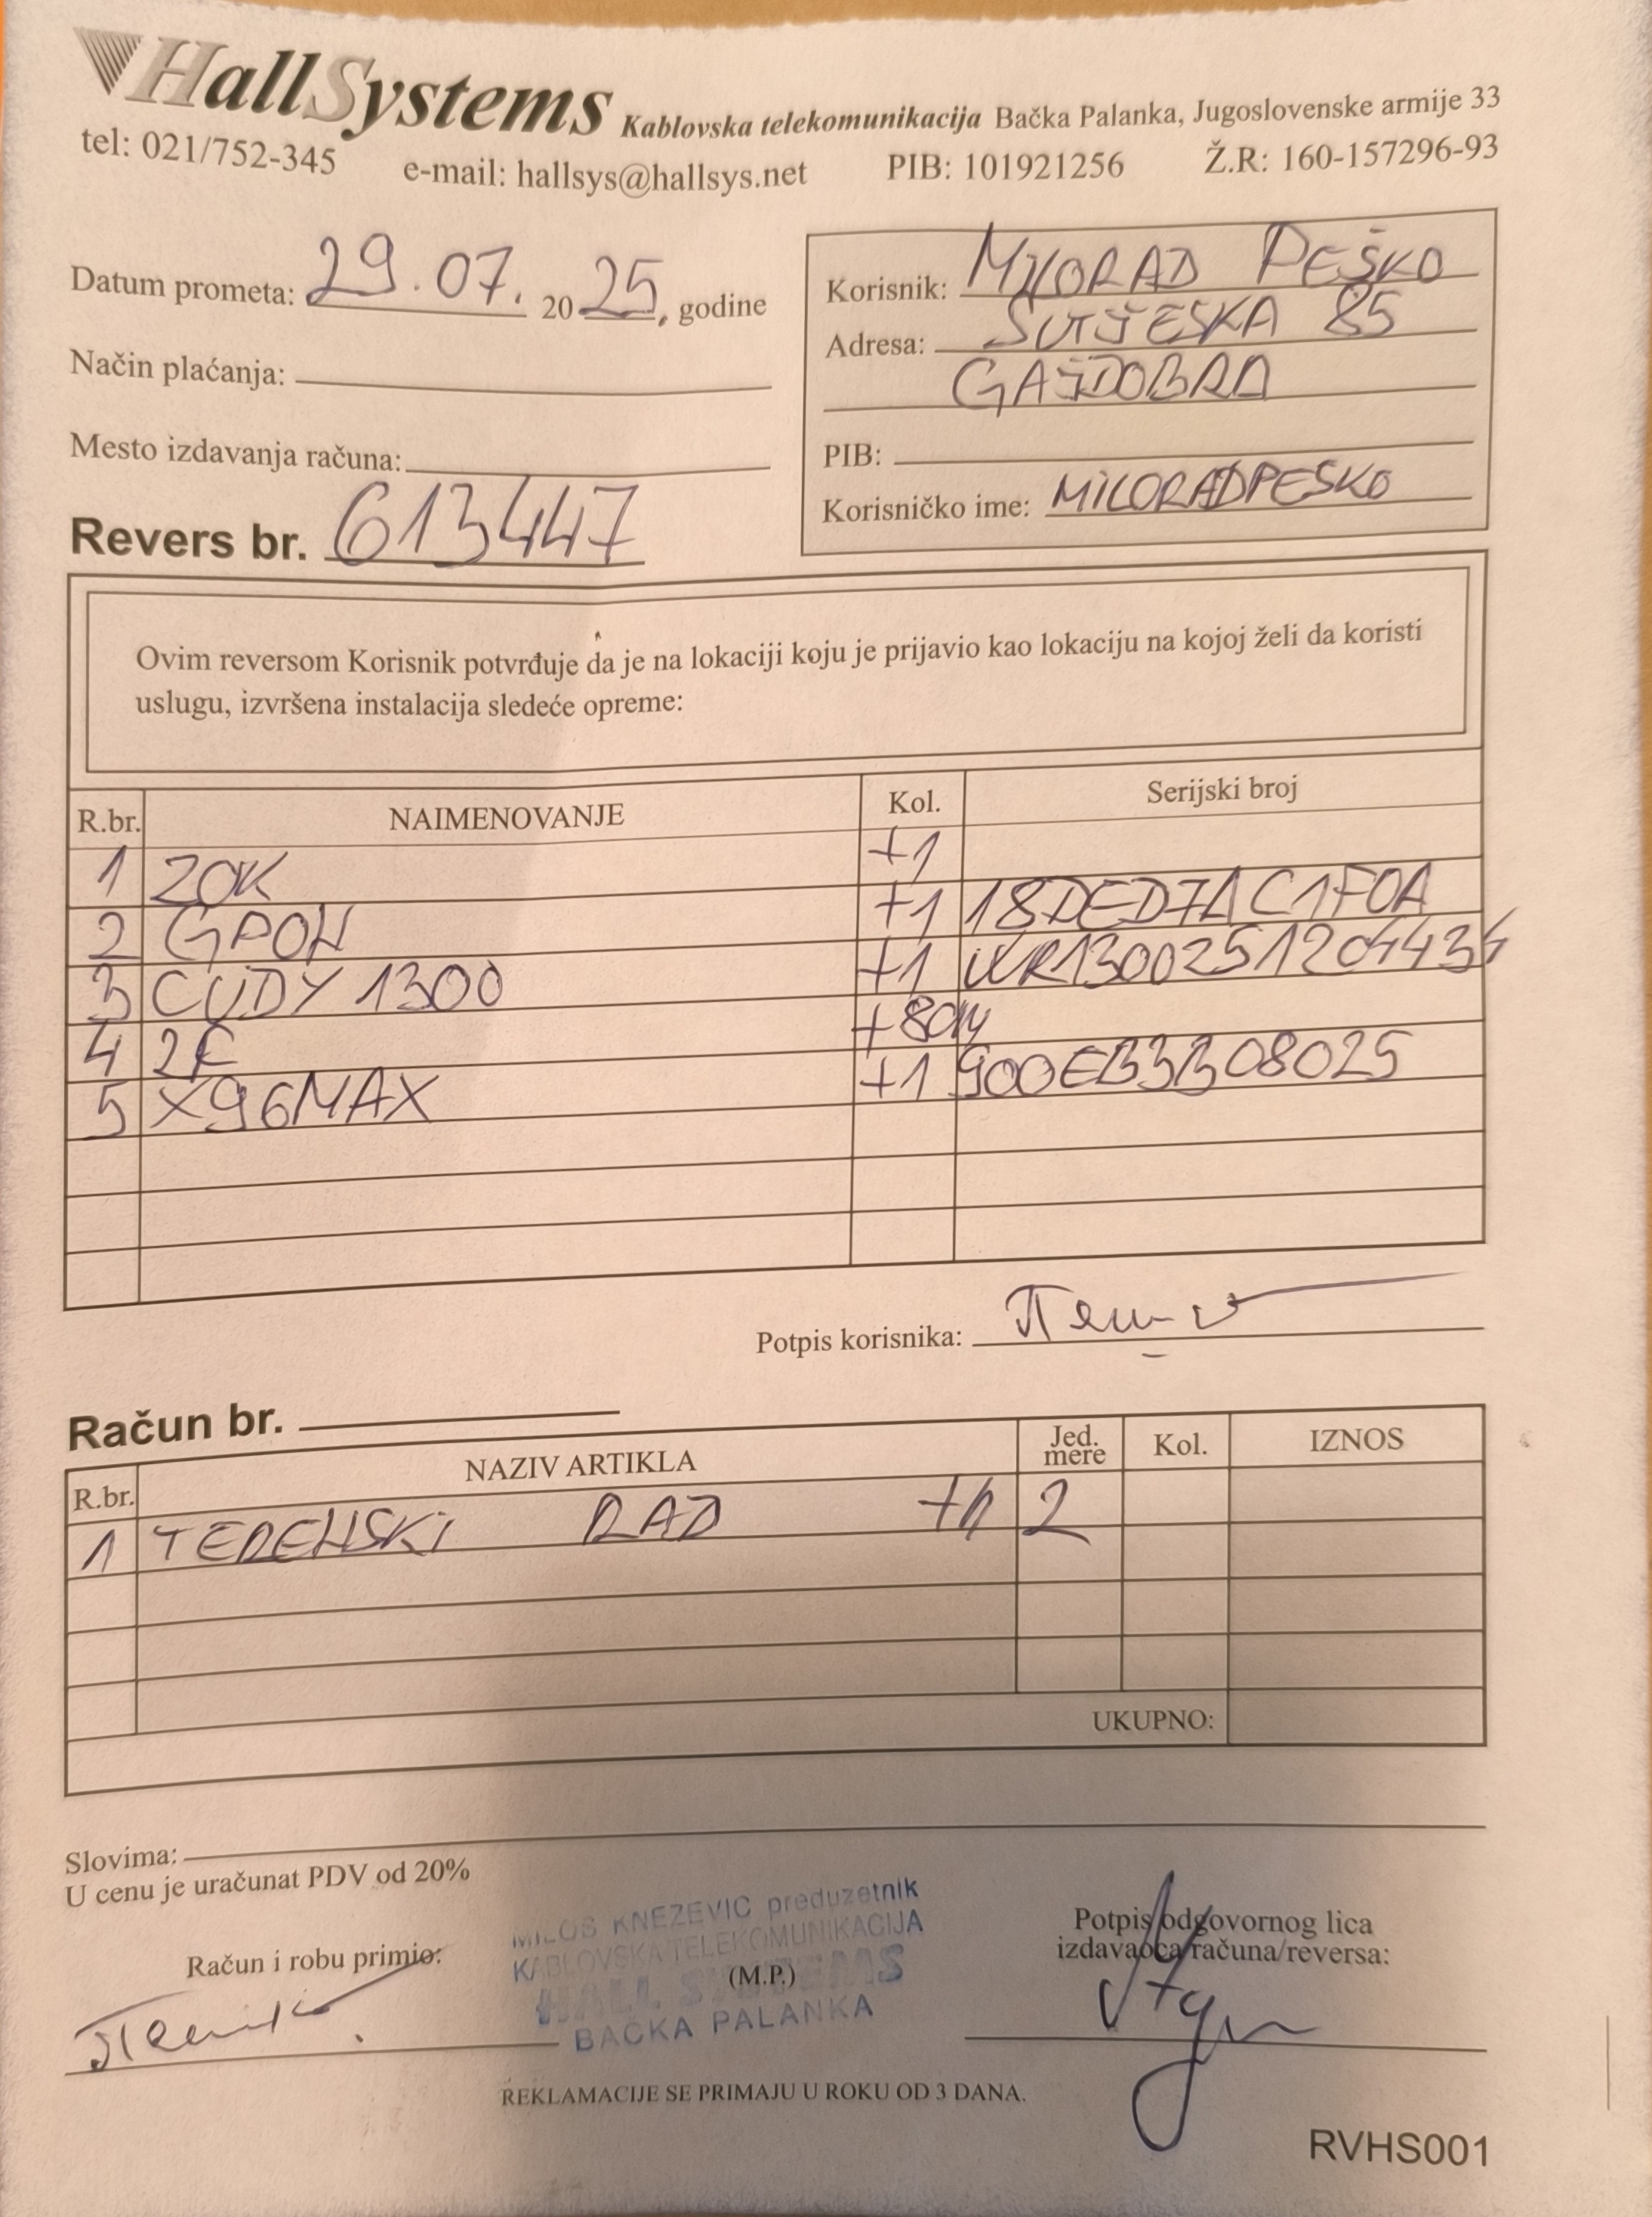 HallSystems Kablovska telekomunikacija Bačka Palanka, Jugoslovenske armije 33
tel: 021/752-345 e-mail: hallsys@hallsys.net PIB: 101921256 Ž.R: 160-157296-93
Datum prometa: 29.07. 2025, godine
Način plaćanja:
Mesto izdavanja računa:
Revers br. 613447
Korisnik: MILORAD PEŠKO
Adresa: SUTJESKA 85
GAJDOBRA
PIB:
Korisničko ime: MILORADPESKO
Ovim reversom Korisnik potvrđuje da je na lokaciji koju je prijavio kao lokaciju na kojoj želi da koristi
uslugu, izvršena instalacija sledeće opreme:
R.br. NAIMENOVANJE Kol. Serijski broj
1 ZOK +1
2 GPON +1 18DED7AC1F0A
3 CUDY 1300 +1 WR1300251204434
4 2F +80M
5 X96MAX +1 900EB3B08025
Potpis korisnika:
Račun br.
R.br. NAZIV ARTIKLA Jed. mere Kol. IZNOS
1 TERENSKI RAD 2
UKUPNO:
Slovima:
U cenu je uračunat PDV od 20%
Račun i robu primio:
MILOŠ KNEŽEVIĆ preduzetnik
KABLOVSKA TELEKOMUNIKACIJA
(M.P.)
HALL SYSTEMS
BAČKA PALANKA
Potpis odgovornog lica
izdavaoca računa/reversa:
REKLAMACIJE SE PRIMAJU U ROKU OD 3 DANA.
RVHS001